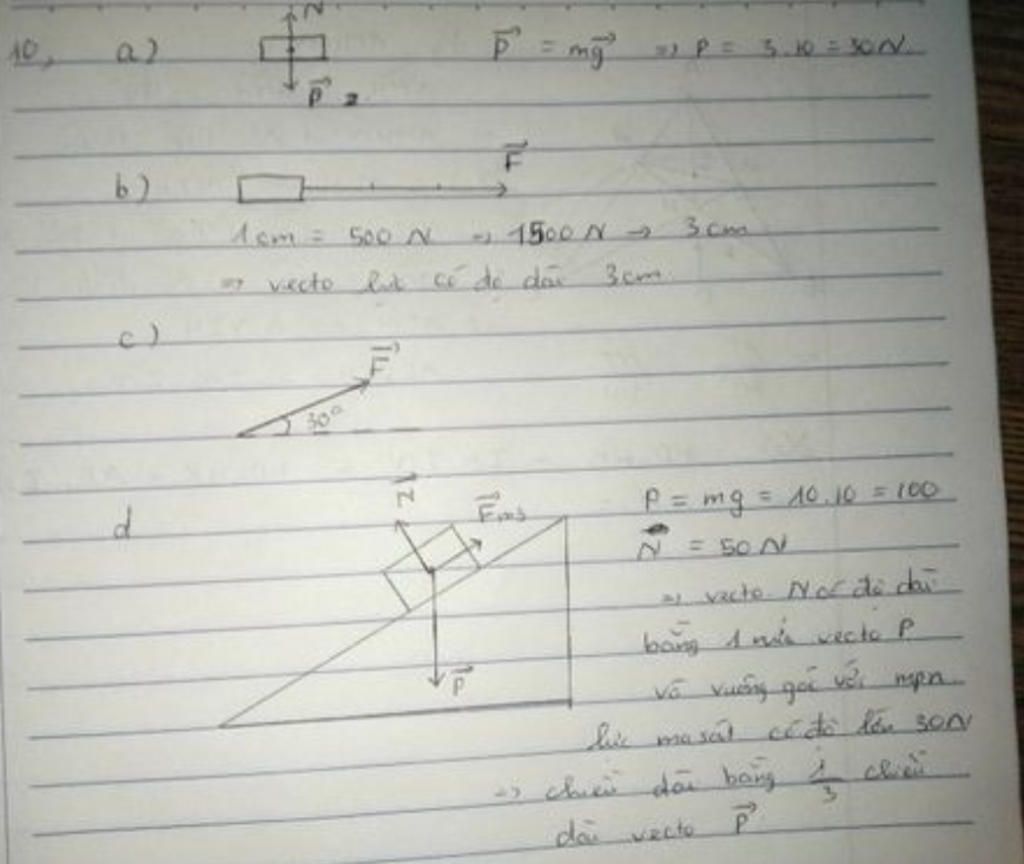 10, a) N P⃗ = mg⃗ => P = 3.10 = 30N
P⃗
b) F⃗
1cm = 500 N => 1500 N -> 3 cm
=> vecto lực có độ dài 3cm
c)
F⃗
30°
d N⃗ F⃗ms P = mg = 10.10 = 100
N = 50 N
=> vecto N có độ dài
bằng 1 nửa vecto P
P⃗ và vuông góc với mpn
lực ma sát có độ lớn 30N
=> chiều dài bằng 1/3 chiều
dài vecto P⃗